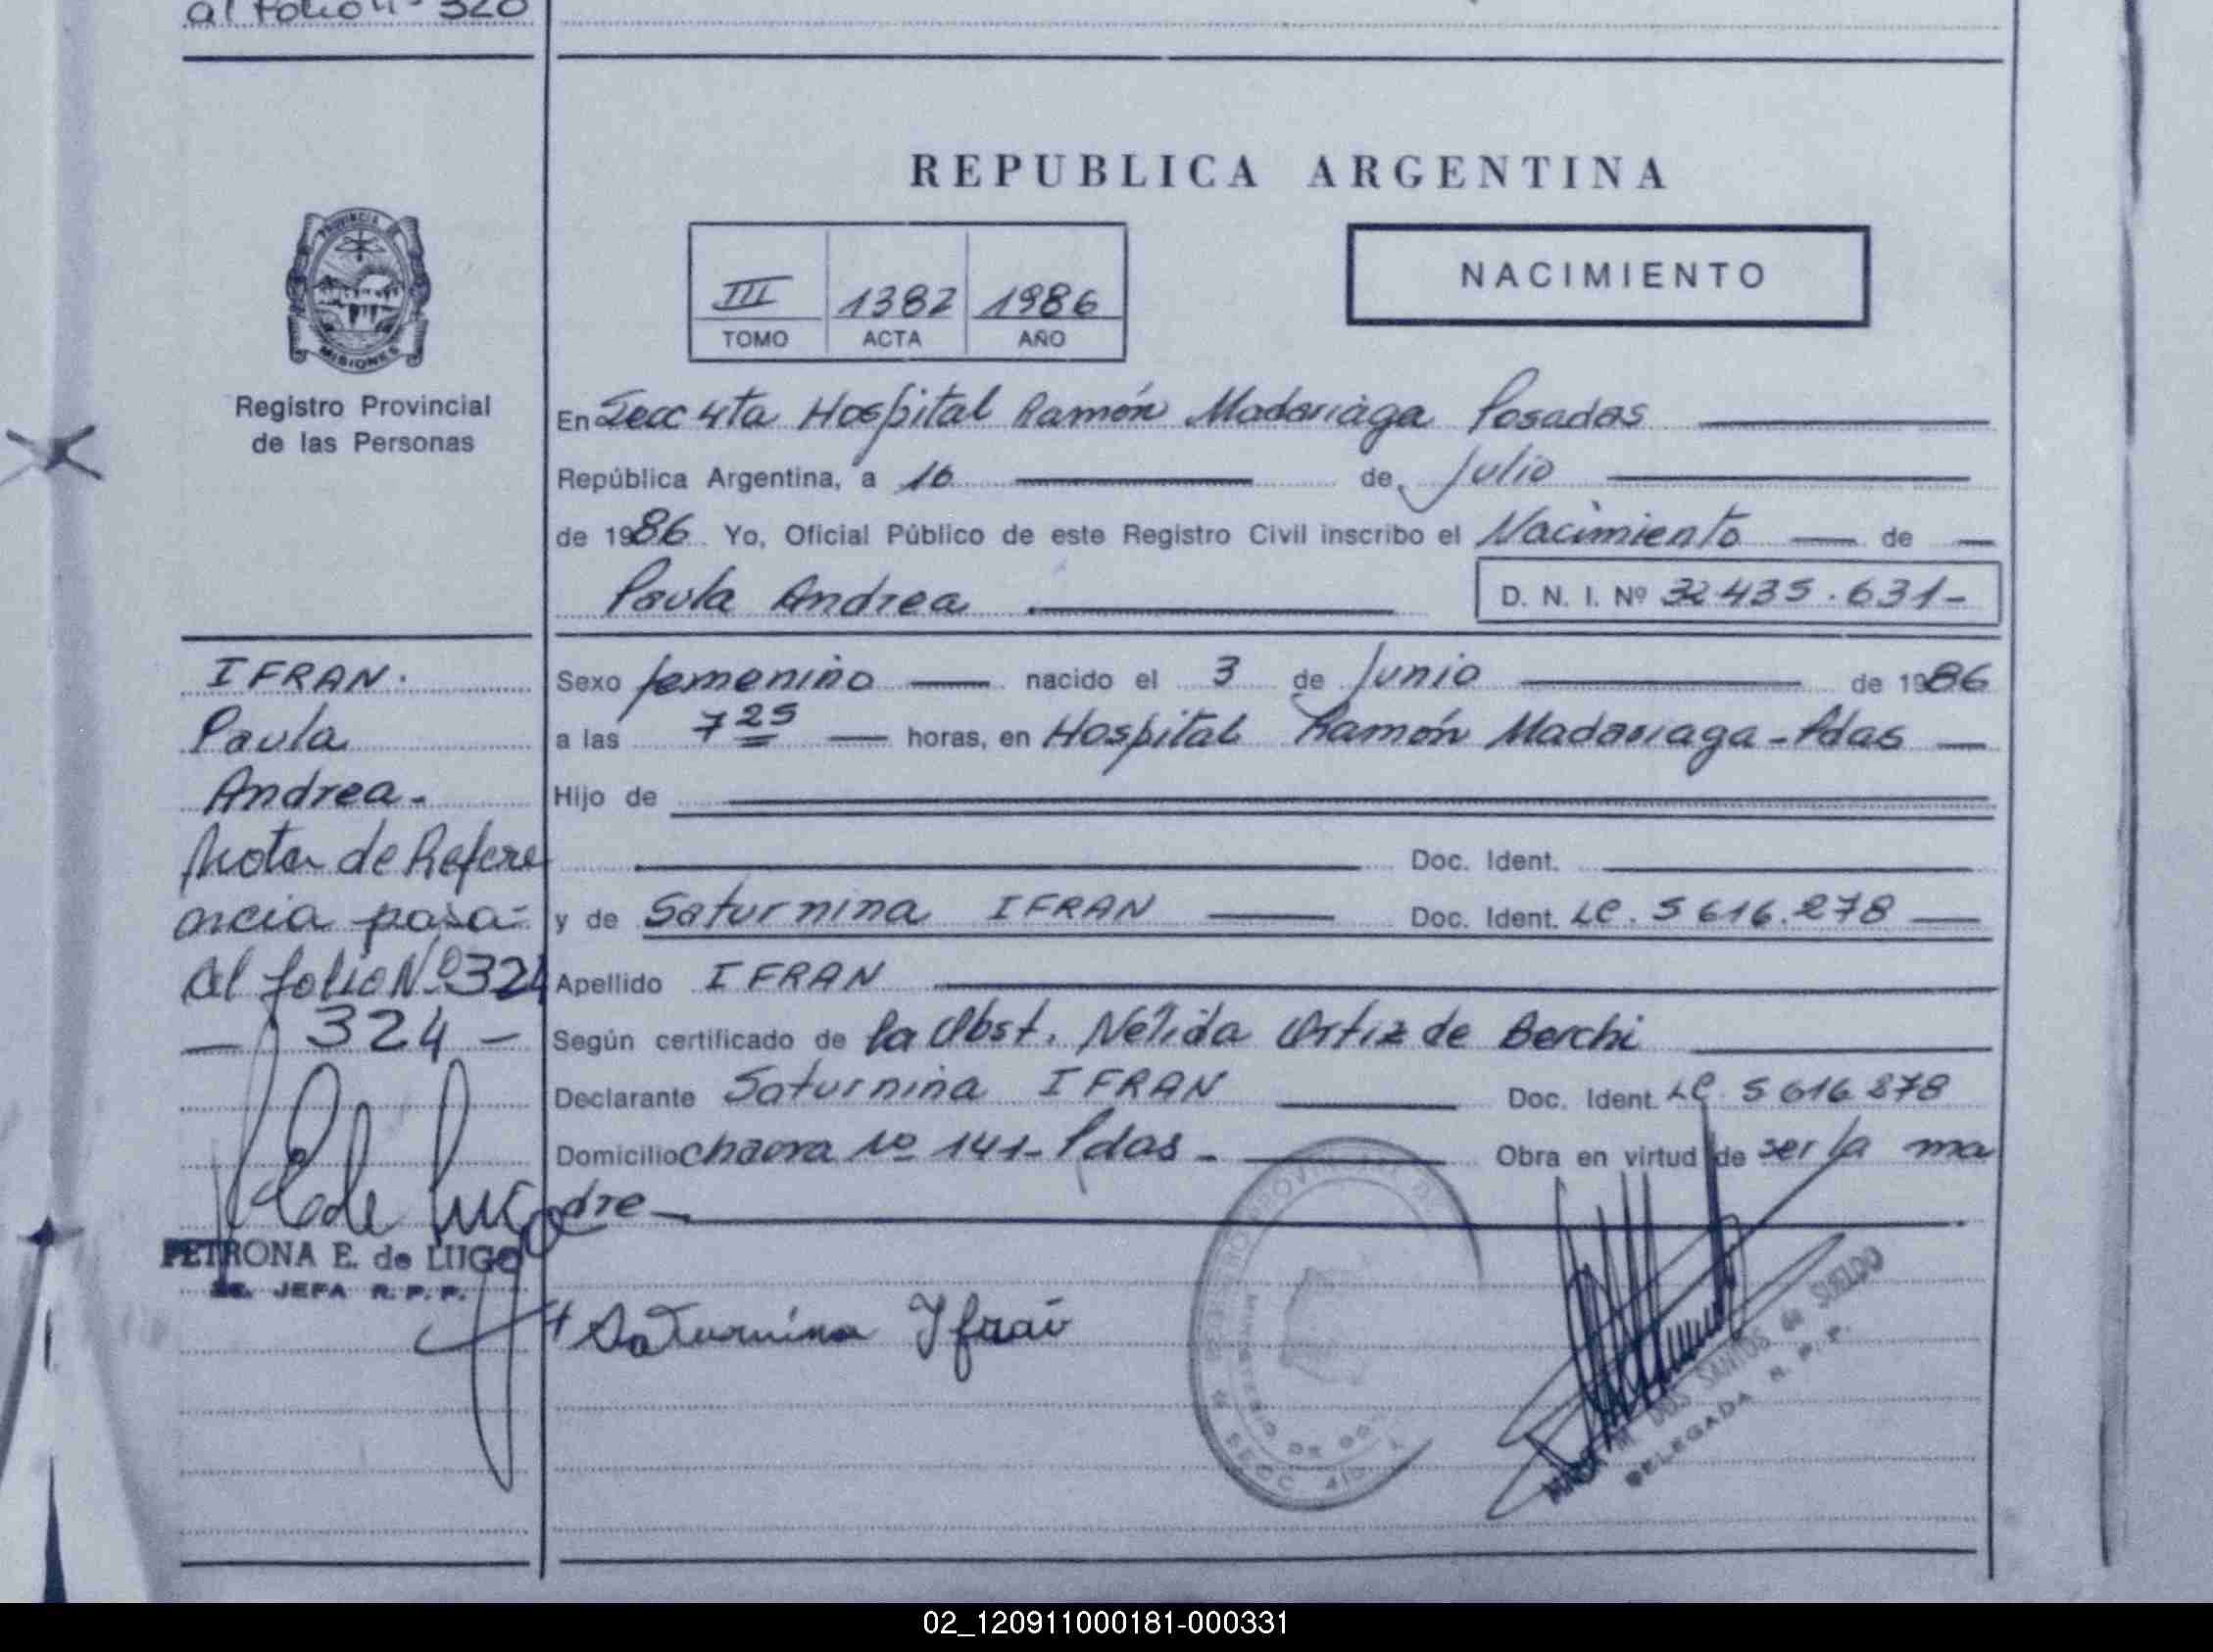 al Folio nº 320
REPUBLICA ARGENTINA
PROVINCIA DE
MISIONES
Registro Provincial
de las Personas
III 1382 1986
TOMO ACTA AÑO
NACIMIENTO
En Secc 4ta Hospital Ramón Madariaga Posadas
República Argentina, a 16 de Julio
de 1986 Yo, Oficial Público de este Registro Civil inscribo el Nacimiento de
Paula Andrea D. N. I. Nº 32435.631-
IFRAN.
Paula
Andrea.-
Nota de Refere
ncia pasa
al folio Nº 324
- 324 -
PETRONA E. de LUGO
JEFA R. P. P.
Sexo femenino nacido el 3 de Junio de 1986
a las 7 25 horas, en Hospital Ramón Madariaga - Pdas
Hijo de
Doc. Ident.
y de Saturnina IFRAN Doc. Ident. LC. 5616.278
Apellido IFRAN
Según certificado de la Obst. Nélida Ortiz de Berchi
Declarante Saturnina IFRAN Doc. Ident. LC. 5616278
Domicilio chacra Nº 141- Pdas - Obra en virtud de ser la ma
dre -
Saturnina Ifran
DOS SANTOS de SUELDO
DELEGADA R. P. P.
02_120911000181-000331